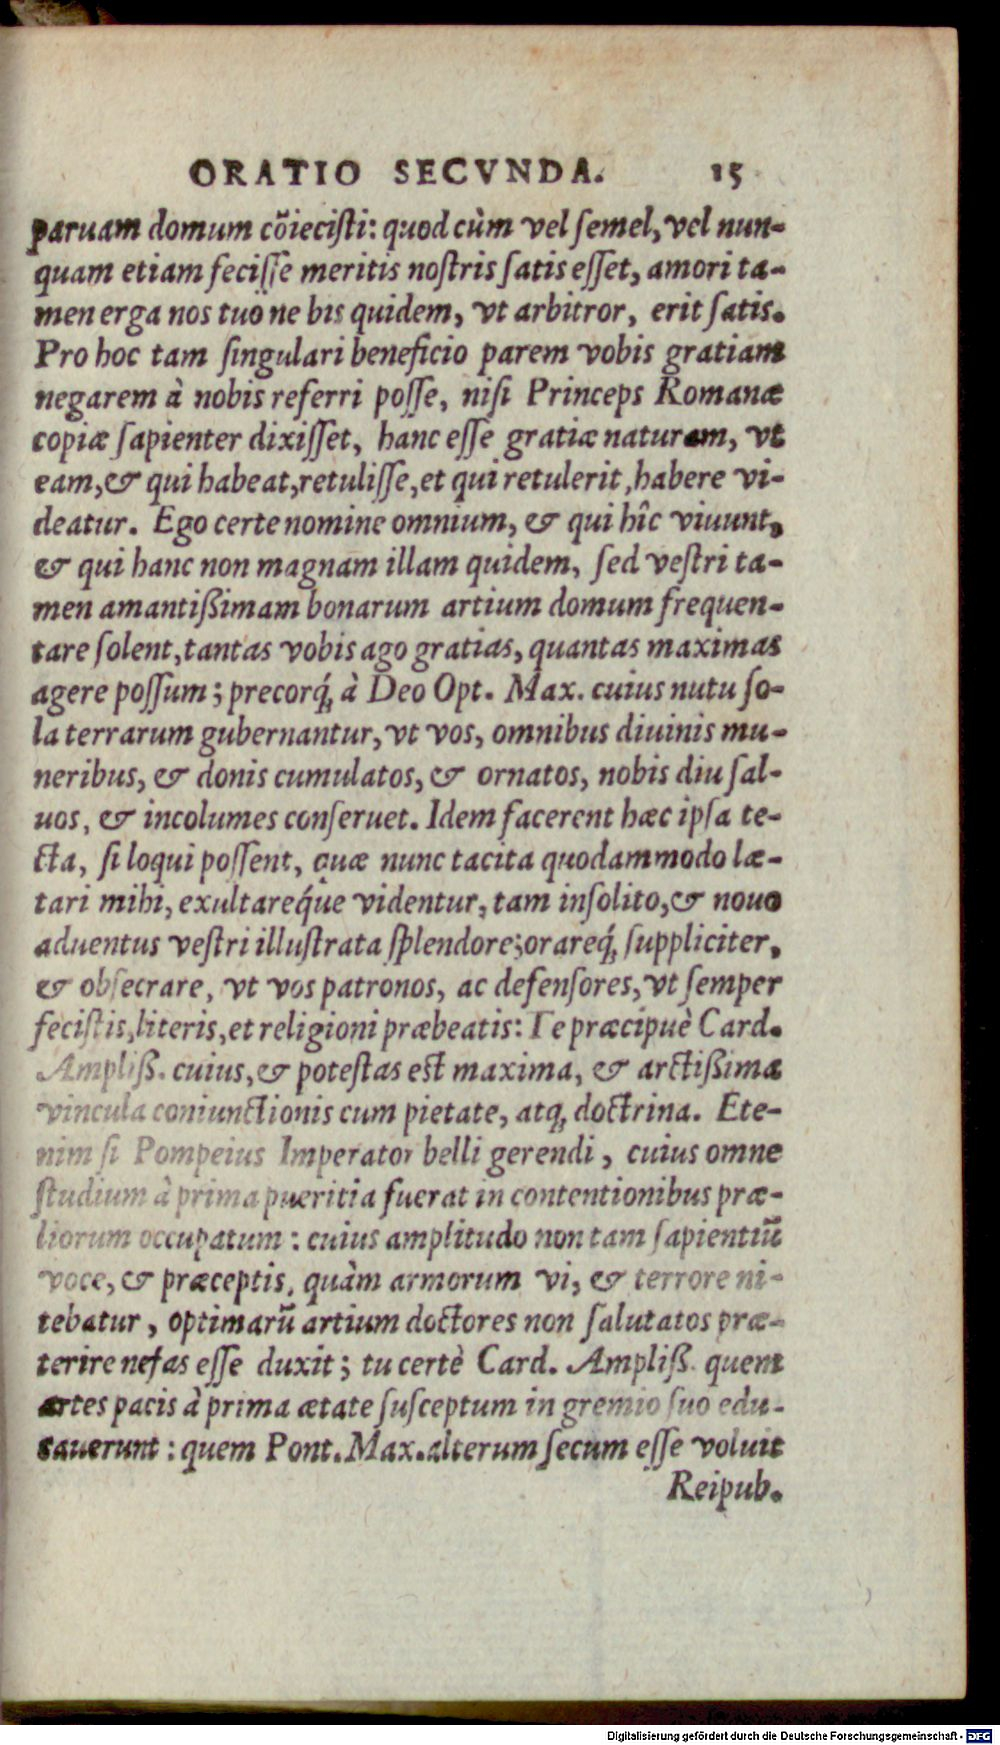 ORATIO SECVNDA. 15
paruam domum cõiecisti: quod cùm vel semel, vel nun-
quam etiam fecisse meritis nostris satis esset, amori ta-
men erga nos tuo ne bis quidem, vt arbitror, erit satis.
Pro hoc tam singulari beneficio parem vobis gratiam
negarem à nobis referri posse, nisi Princeps Romanæ
copiæ sapienter dixisset, hanc esse gratiæ naturam, vt
eam, & qui habeat, retulisse, et qui retulerit, habere vi-
deatur. Ego certe nomine omnium, & qui hîc viuunt,
& qui hanc non magnam illam quidem, sed vestri ta-
men amantißimam bonarum artium domum frequen-
tare solent, tantas vobis ago gratias, quantas maximas
agere possum; precorq́; à Deo Opt. Max. cuius nutu so-
la terrarum gubernantur, vt vos, omnibus diuinis mu-
neribus, & donis cumulatos, & ornatos, nobis diu sal-
uos, & incolumes conseruet. Idem facerent hæc ipsa te-
cta, si loqui possent, quæ nunc tacita quodammodo læ-
tari mihi, exultareq́ue videntur, tam insolito, & nouo
aduentus vestri illustrata splendore; orareq́; suppliciter,
& obsecrare, vt vos patronos, ac defensores, vt semper
fecistis, literis, et religioni præbeatis: Te præcipuè Card.
Ampliß. cuius, & potestas est maxima, & arctißima
vincula coniunctionis cum pietate, atq; doctrina. Ete-
nim si Pompeius Imperator belli gerendi, cuius omne
studium à prima pueritia fuerat in contentionibus præ-
liorum occupatum: cuius amplitudo non tam sapientiũ
voce, & præceptis, quàm armorum vi, & terrore ni-
tebatur, optimarũ artium doctores non salutatos præ-
terire nefas esse duxit; tu certè Card. Ampliß. quem
artes pacis à prima ætate susceptum in gremio suo edu-
cauerunt: quem Pont. Max. alterum secum esse voluit
Reipub.
Digitalisierung gefördert durch die Deutsche Forschungsgemeinschaft - DFG